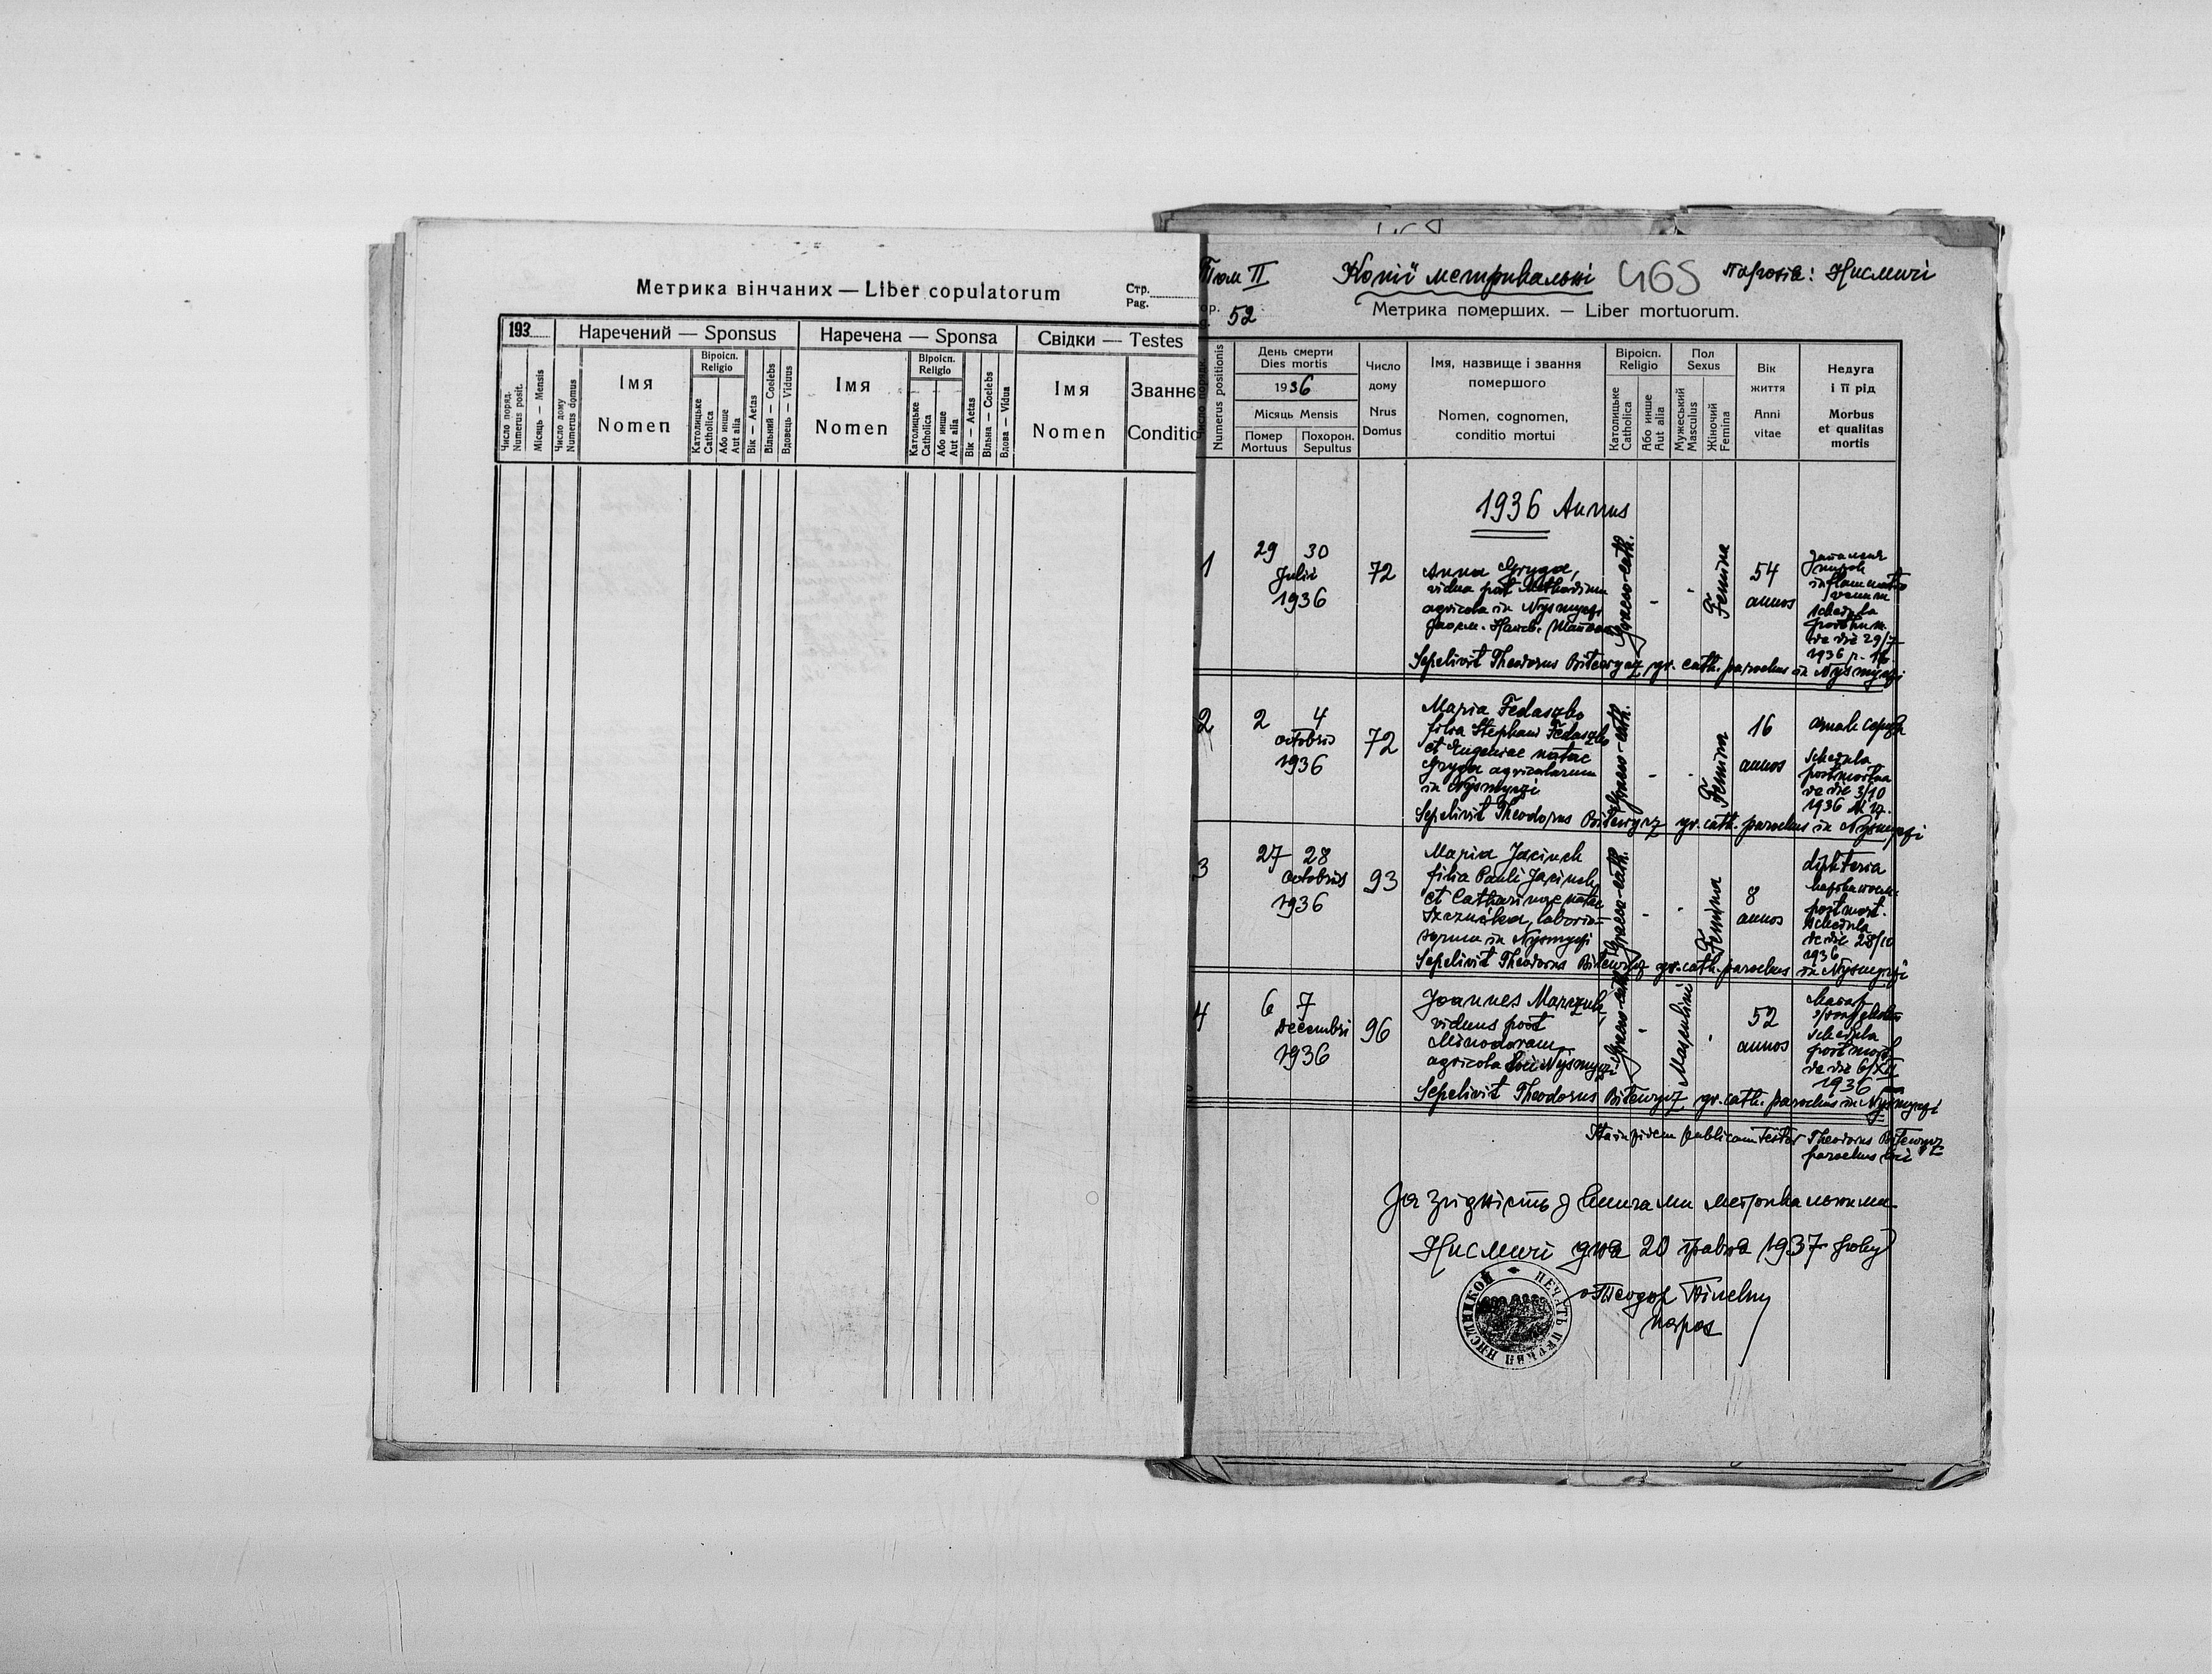 Метрика вінчаних — Liber copulatorum
Стр.
Pag.
193
Наречений — Sponsus
Наречена — Sponsa
Свідки — Testes
Число поряд.
Numerus posit.
Місяць — Mensis
Число дому
Numerus domus
Імя
Nomen
Віроісп.
Religio
Католицьке
Catholica
Або инше
Aut alia
Вік — Aetas
Вільний — Coelebs
Вдовець — Viduus
Імя
Nomen
Віроісп.
Religio
Католицьке
Catholica
Або инше
Aut alia
Вік — Aetas
Вільна — Coelebs
Вдова — Vidua
Імя
Nomen
Званнє
Conditio
Том II
Копії метрикальні
465
Парохія: Нисмичі
52
Метрика померших. — Liber mortuorum.
Numerus positionis
День смерти
Dies mortis
1936
Місяць Mensis
Помер
Mortuus
Похорон.
Sepultus
Число
дому
Nrus
Domus
Імя, назвище і звання
помершого
Nomen, cognomen,
conditio mortui
Віроісп.
Religio
Католицьке
Catholica
Або инше
Aut alia
Пол
Sexus
Мужеський
Masculus
Жіночий
Femina
Вік
життя
Anni
vitae
Недуга
і її рід
Morbus
et qualitas
mortis
1936 Annus
1
29 30
Julii
1936
72
Anna Gryga,
vidua post Methodium
agricola in Nysmyczi
Graeco-cath.
-
Femina
54
annos
inflammatio
schedula
posthum.
de die 29/7
1936
Sepelivit Theodorus Bitewycz, gr. cath. parochus in Nysmyczi
2
2 4
octobris
1936
72
Maria Fedaszko
filia Stephani Fedaszko
et Eugeniae natae
Gryga agricolarum
in Nysmyczi
Graeco-cath.
-
Femina
16
annos
schedula
postmortua
de die 3/10
1936
Sepelivit Theodorus Bitewycz gr. cath. parochus in Nysmyczi
3
27 28
octobris
1936
93
Maria Jacinek
filia Pauli Jacinek
et Catharinae natae
in Nysmyczi
Graeco-cath.
-
Femina
8
annos
difteria
postmort.
schedula
de die 28/10
1936
Sepelivit Theodorus Bitewycz gr. cath. parochus in Nysmyczi
4
6 7
Decembri
1936
96
Joannes Marczuk,
viduus post
Minodoram
agricola in Nysmyczi
Graeco-cath.
-
Masculini
52
annos
schedula
postmort
de die 6/XII
1936
Sepelivit Theodorus Bitewycz gr. cath. parochus in Nysmyczi
Ita in fidem publicam testor Theodorus Bitewycz
parochus loci
За згідність з книгами метрикальними
Нисмичі дня 20 травня 1937 року
о Теодор
парох
ПЕЧАТЬ ЦЕРКВИ